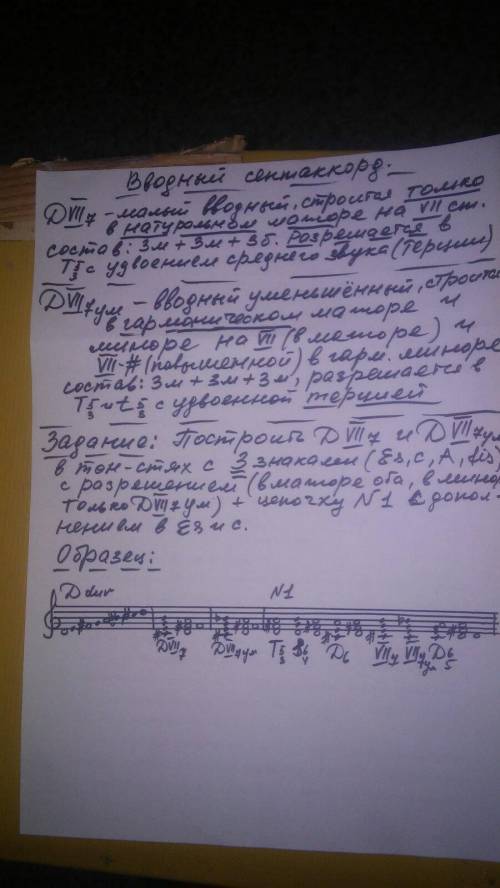 Вводный септаккорд:
DVII7 - малый вводный, строится только
в натуральном мажоре на VII ст.
состав: 3м + 3м + 3б. Разрешается в
T5/3 с удвоением среднего звука (терции)
DVII7ум - вводный уменьшённый, строится
в гармоническом мажоре и
миноре на VII (в мажоре) и
VII-# (повышенной) в гарм. миноре
состав: 3м + 3м + 3м, разрешается в
T5/3 и t5/3 с удвоенной терцией
Задание: Построить DVII7 и DVII7ум
в тон-стях с 3 знаками (Es, c, A, fis)
с разрешением (в мажоре оба, в миноре
только DVII7ум) + цепочку N1 с допол-
нением в Es и c.
Образец:
D dur N1
DVII7 DVII7ум T5/3 S6/4 D6 VII7 VII7ум D6/5